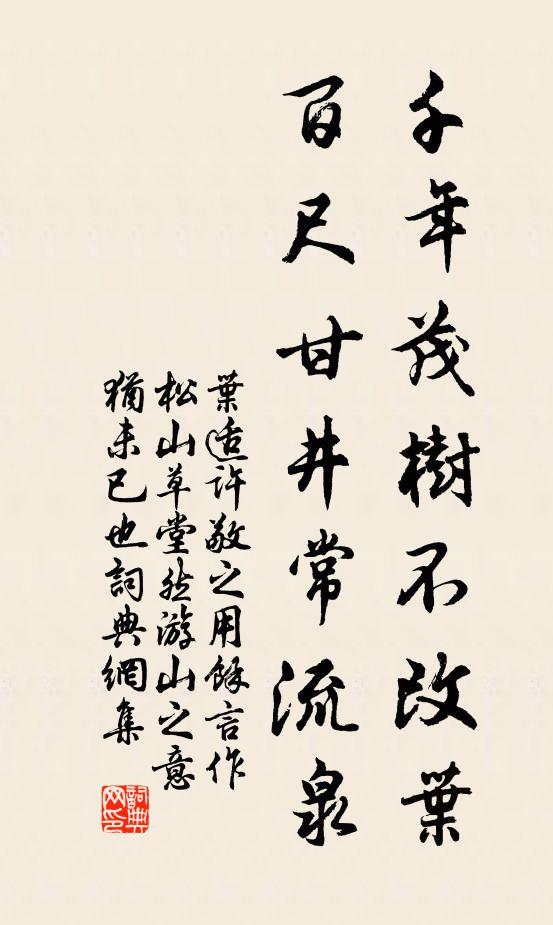 千年茂樹不改葉
百尺甘井常流泉
葉適許敬之用餘言作
松山草堂然游山之意
猶未已也詞典網集
詞典网印